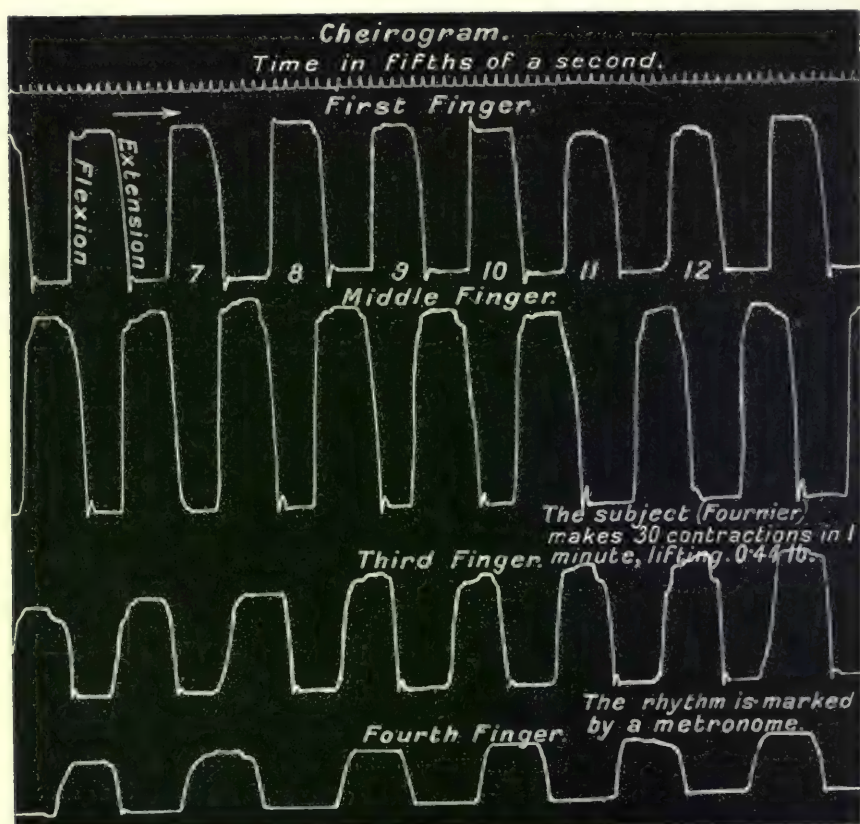 Cheirogram.
Time in fifths of a second.
First Finger.
Flexion
Extension
7 8 9 10 11 12
Middle Finger.
The subject (Fournier)
makes 30 contractions in 1
minute, lifting 0·44 lb.
Third Finger.
The rhythm is marked
by a metronome.
Fourth Finger.